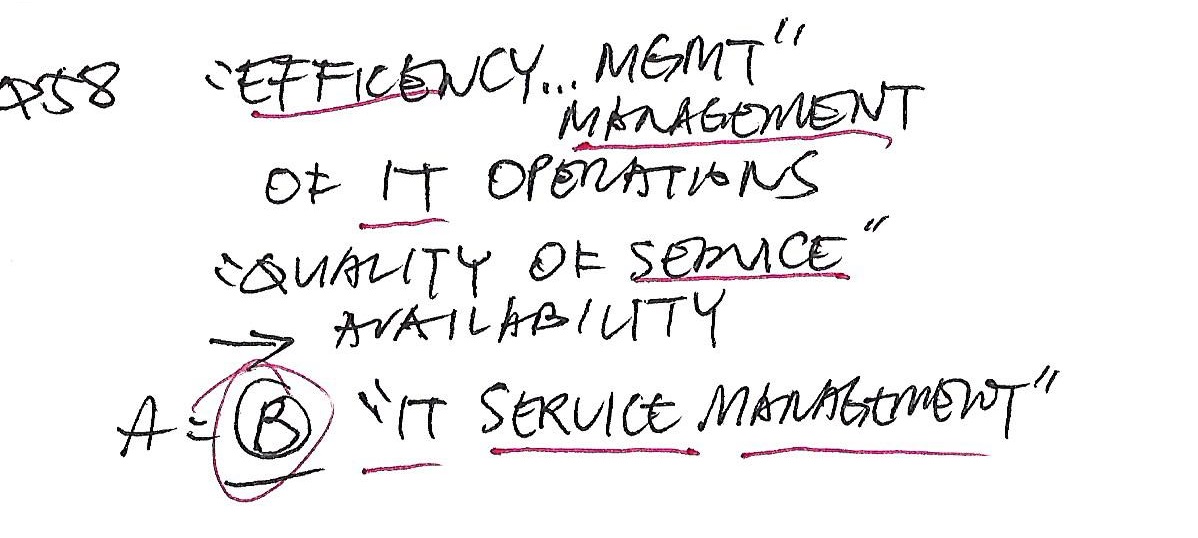 Q58 "EFFICENCY... MGMT"
MANAGEMENT
OF IT OPERATIONS
"QUALITY OF SERVICE"
→ AVAILABILITY
A = B "IT SERVICE MANAGEMENT"